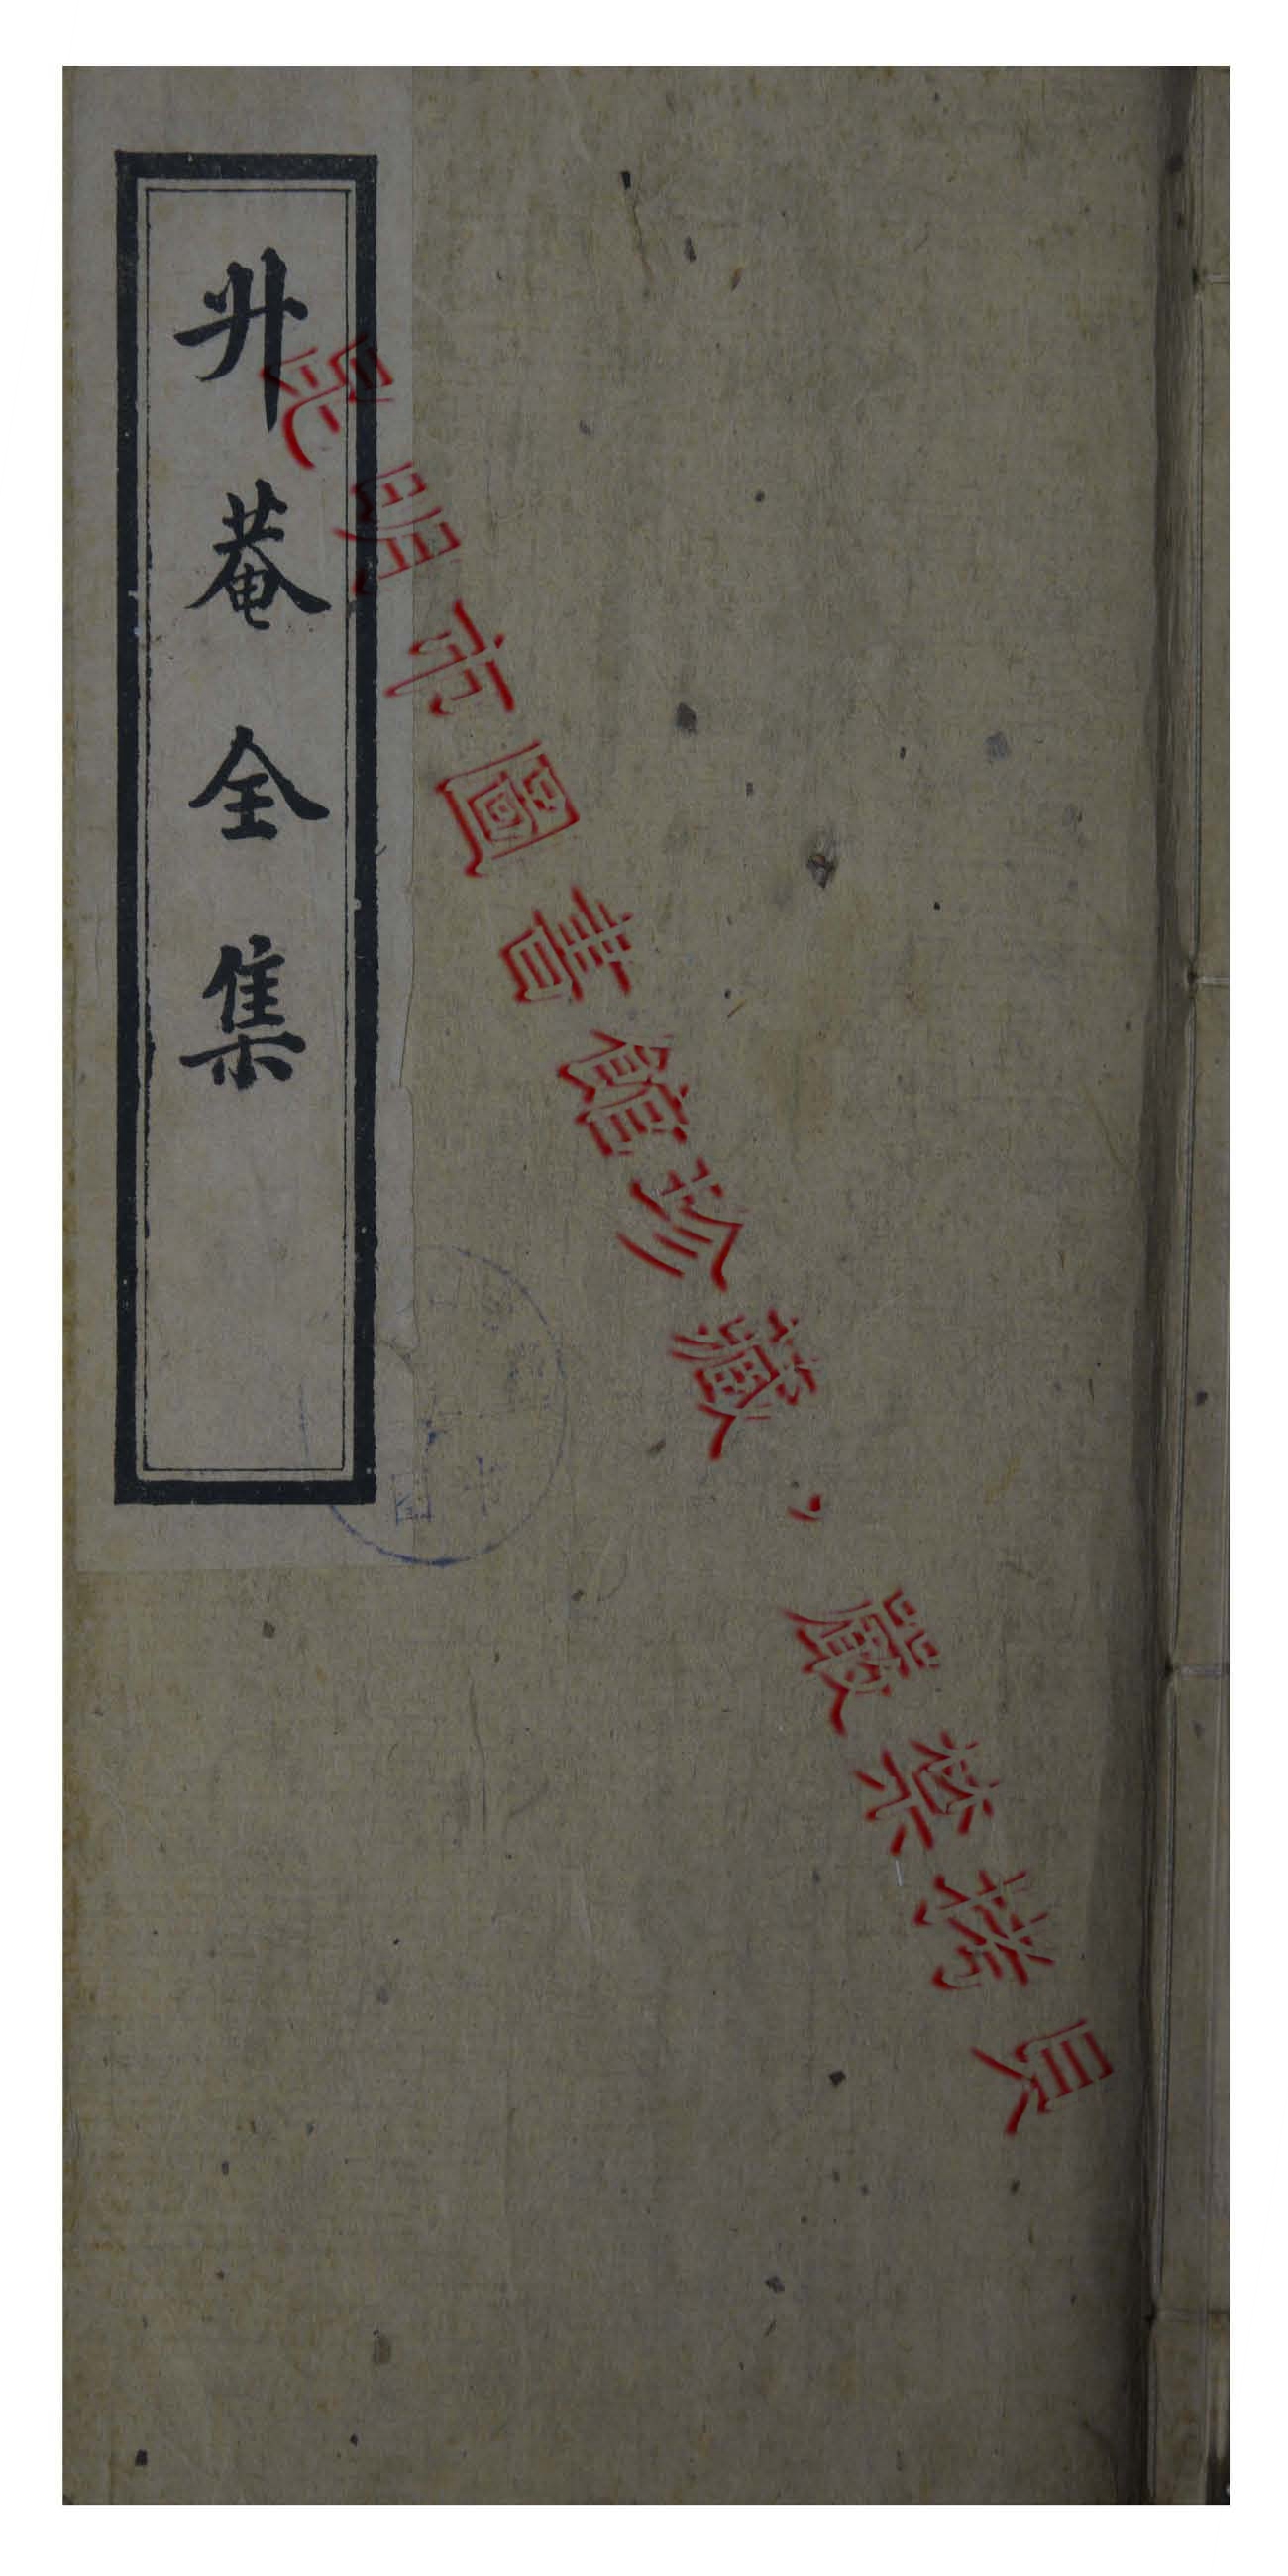 升菴全集
昆明市圖書館珍藏，嚴禁拷貝